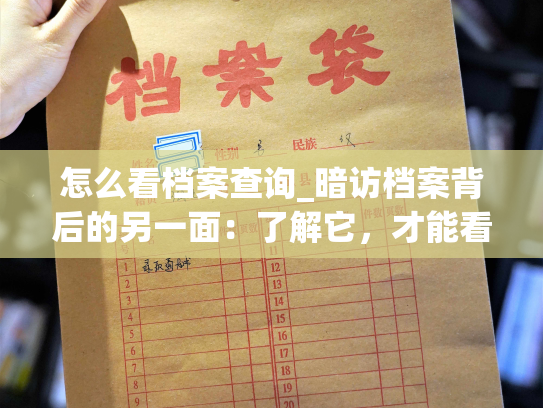 档案袋
性别 男 民族 汉
怎么看档案查询_暗访档案背
后的另一面：了解它，才能看
1 录取通知书 12
2 13
3 14
4 15
5 16
6 17
7 18
8 19
9 20